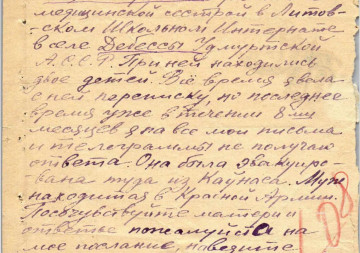 медицинской сестрой в Литов-
ском Школьном Интернате
в селе Дебессы Удмуртской
А.С.С.Р. При ней находились
двое детей. Всё время я вела
с ней переписку, но последнее
время уже в течении 8 ми
месяцев я на все мои письма
и телеграммы не получаю
ответа. Она была эвакуиро-
вана туда из Каунаса. Муж
находится в Красной Армии.
Посочувствуйте матери и
ответьте пожалуйста на
мое послание, наведите